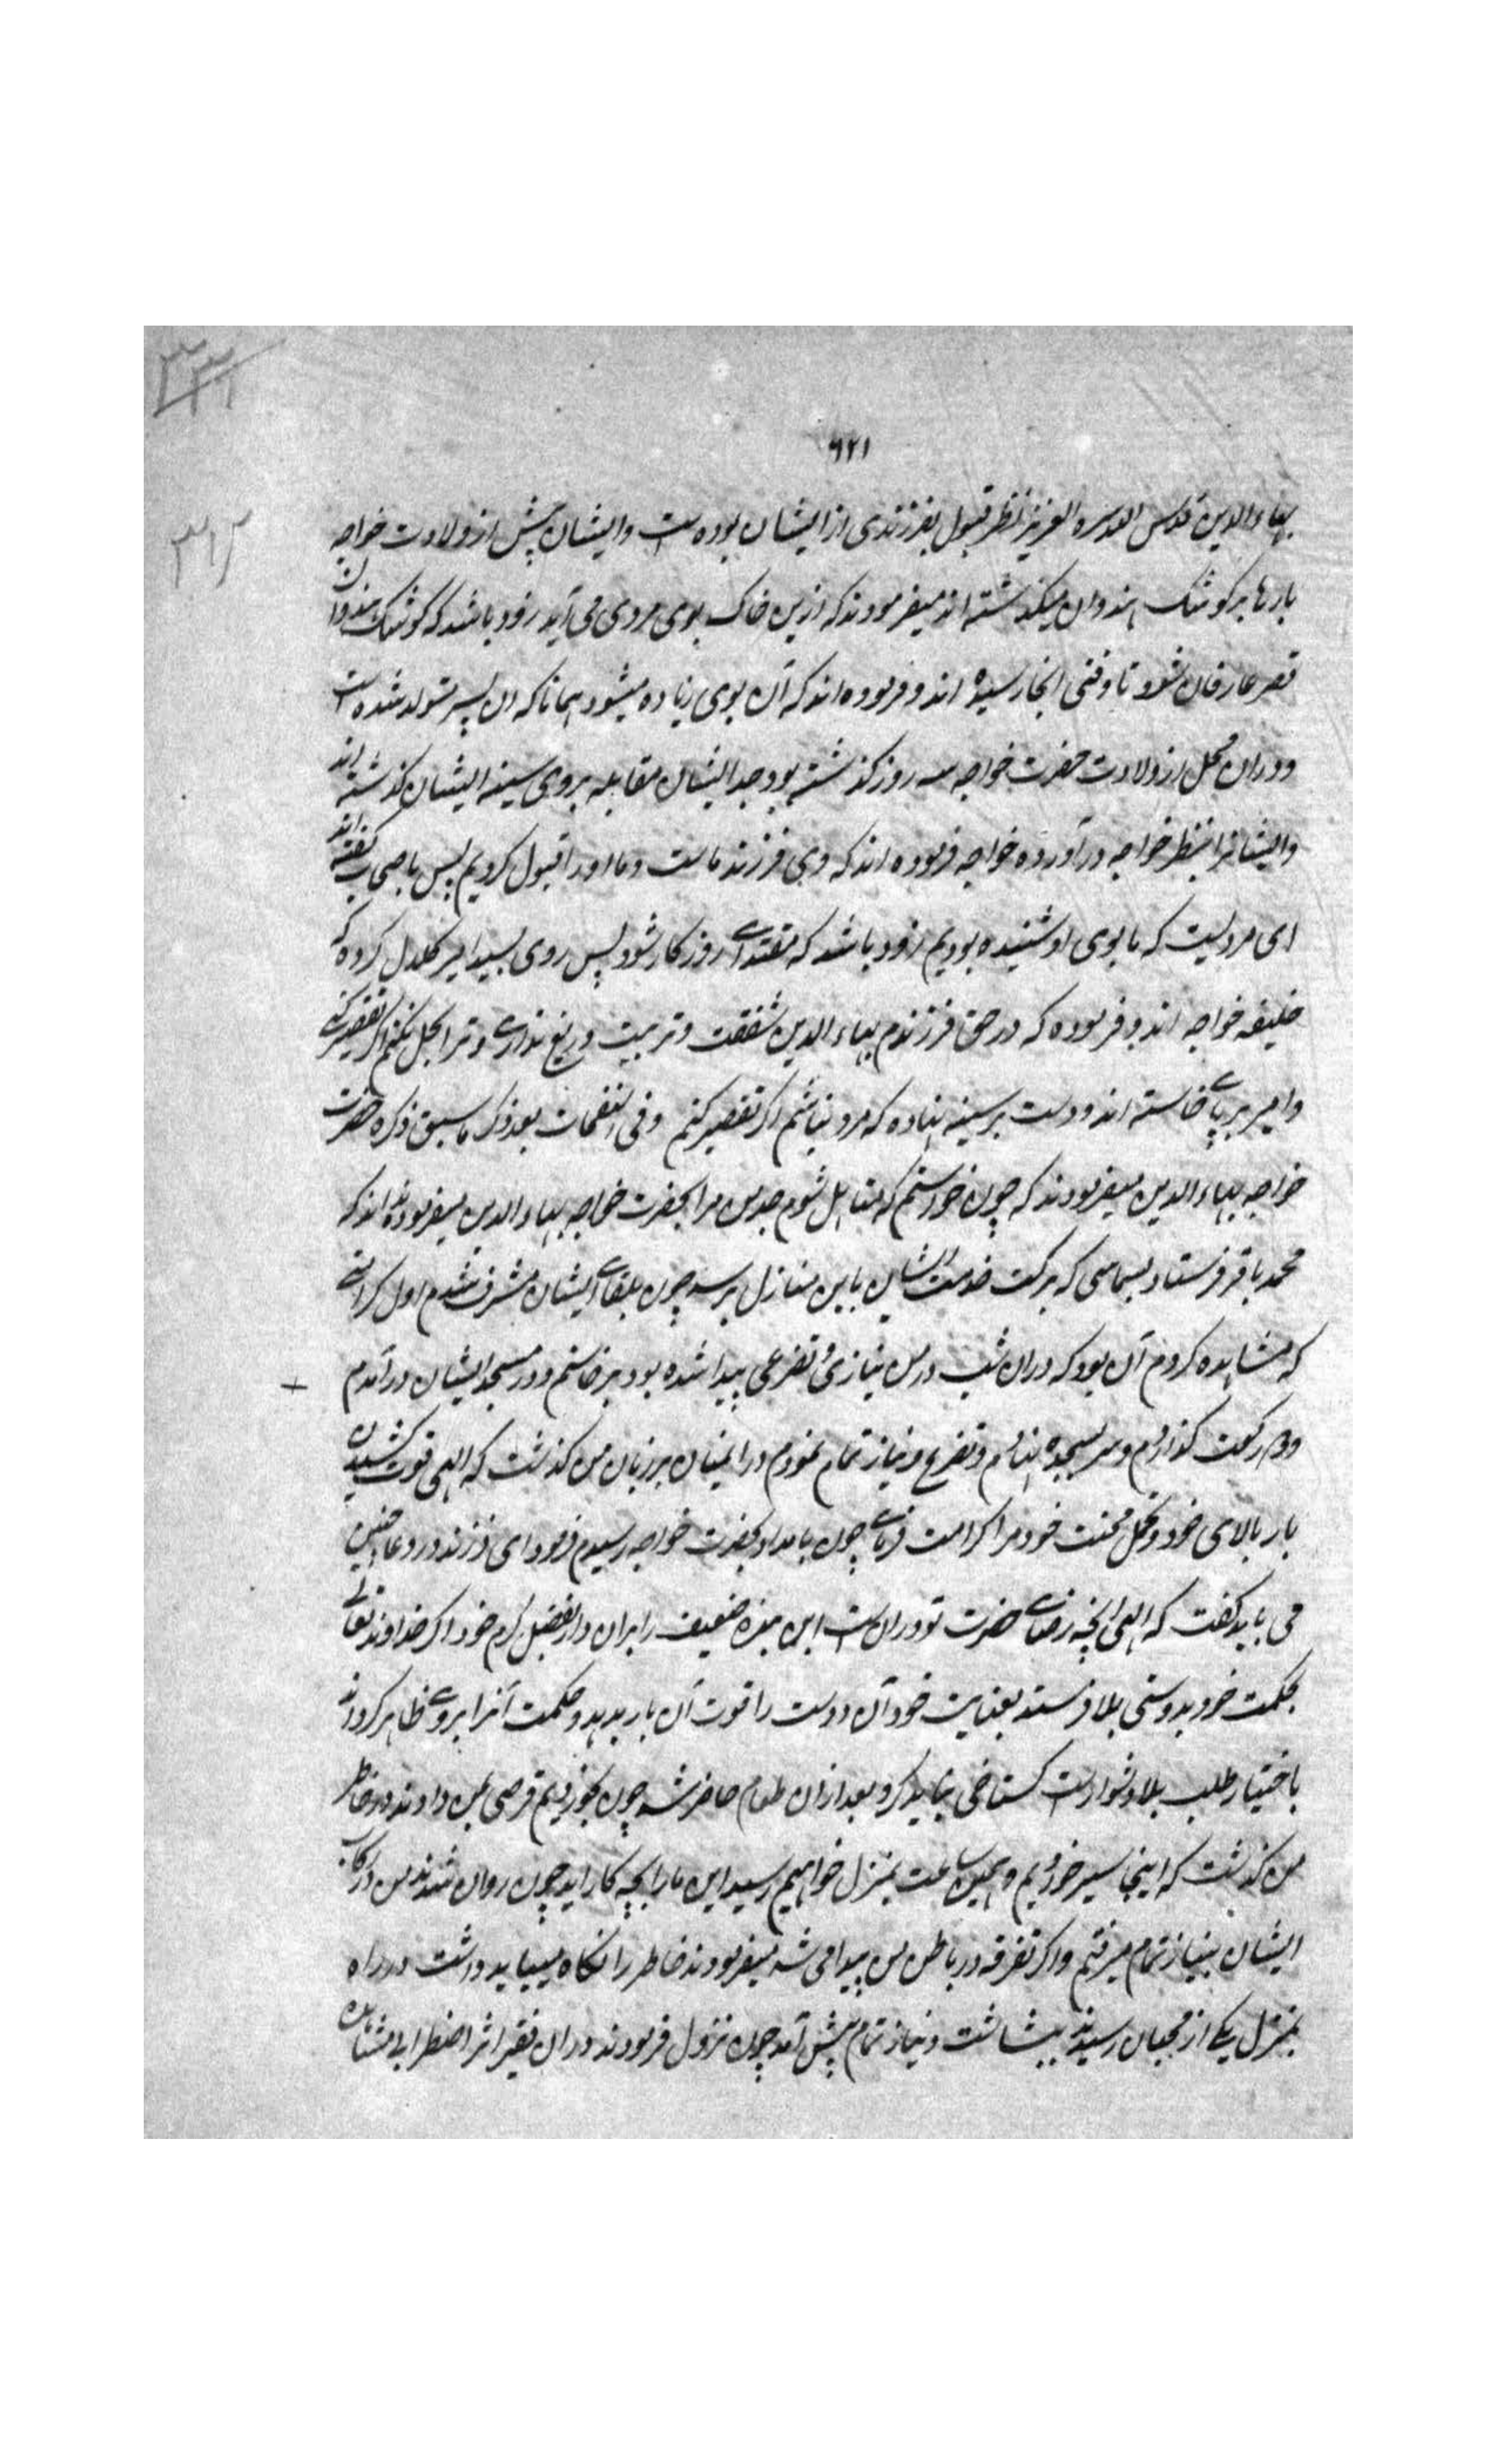 ۶۲۱
بهاء الدین قدس الله سره العزیز نظر قبول بفرزندی از ایشان بوده است و ایشان پیش از ولادت خواجه
بارها بر کوشک هندوان میکذشته اند میفرمودند که ازین خاک بوی مردی می آید زود باشد که کوشک هندوان
قصر عارفان شود تا وقتی انجا رسیده اند و فرموده اند که آن بوی زیاده میشود همانا که ان پسر متولد شده است
و دران محل از ولادت حضرت خواجه سه روز کذشته بود جد ایشان مقابله بروی سینه ایشان کذاشته اند
و ایشانرا بنظر خواجه درآورده خواجه فرموده اند که وی فرزند ماست و ما او را قبول کردیم پس باصحاب گفته اند
ای مردیست که ما بوی او شنیده بودیم زود باشد که مقتدای روزکار شود پس روی بسید امیر کلال کرده که
خلیفه خواجه اند و فرموده که در حق فرزندم بهاء الدین شفقت و تربیت دریغ نداری و ترا بحل نکنم اکر تقصیر کنی
و امیر بر پای خاسته اند و دست بر سینه نهاده که مرد نباشم اکر تقصیر کنم وفی النفحات بعد ذکر ما سبق ذکره حضرت
خواجه بهاء الدین میفرمودند که چون خواستم که متاهل شوم جد من مرا بحضرت خواجه
محمد بابا فرستاد بسماسی که برکت خدمت ایشان باین منازل برسد چون بلقای ایشان مشرف شدم اول کرامتی
که مشاهده کردم آن بود که دران شب در من نیازی و تضرعی پیدا شده بود برخاستم و در مسجد ایشان درآمدم
دو رکعت کذاردم و سر بسجده نهادم و تضرع و نیاز تمام نمودم دران میان بر زبان من کذشت که الهی قوت کشیدن
بار بلای خود و تحمل محنت خود مرا کرامت فرمای چون بامداد بحضرت خواجه رسیدم فرمود ای فرزند در دعا چنین
می باید کفت که الهی انچه رضای حضرت تو دران است این بنده ضعیف را بران دار بفضل و کرم خود اکر خداوند تعالی
بحکمت خود بدوستی بلا فرستد بعنایت خود آن دوست را قوت آن بار بدهد و حکمت آنرا بروی ظاهر کرداند
باختیار طلب بلا دشوار است کستاخی نباید کرد بعد ازان طعام حاضر شد چون بخوردیم قرصی بمن دادند در خاطر
من کذشت که اینجا سیر خوردیم و همین ساعت بمنزل خواهیم رسید این ما را بچه کار اید چون روان شدند من در رکاب
ایشان بنیاز تمام میرفتم و اکر تفرقه در باطن من پیدا می شد میفرمودند خاطر را نکاه میباید داشت در راه
بمنزل یکی از محبان رسیدند ببشاشت و نیاز تمام پیش آمد چون نزول فرمودند دران فقیر اثر اضطرابی مشاهده